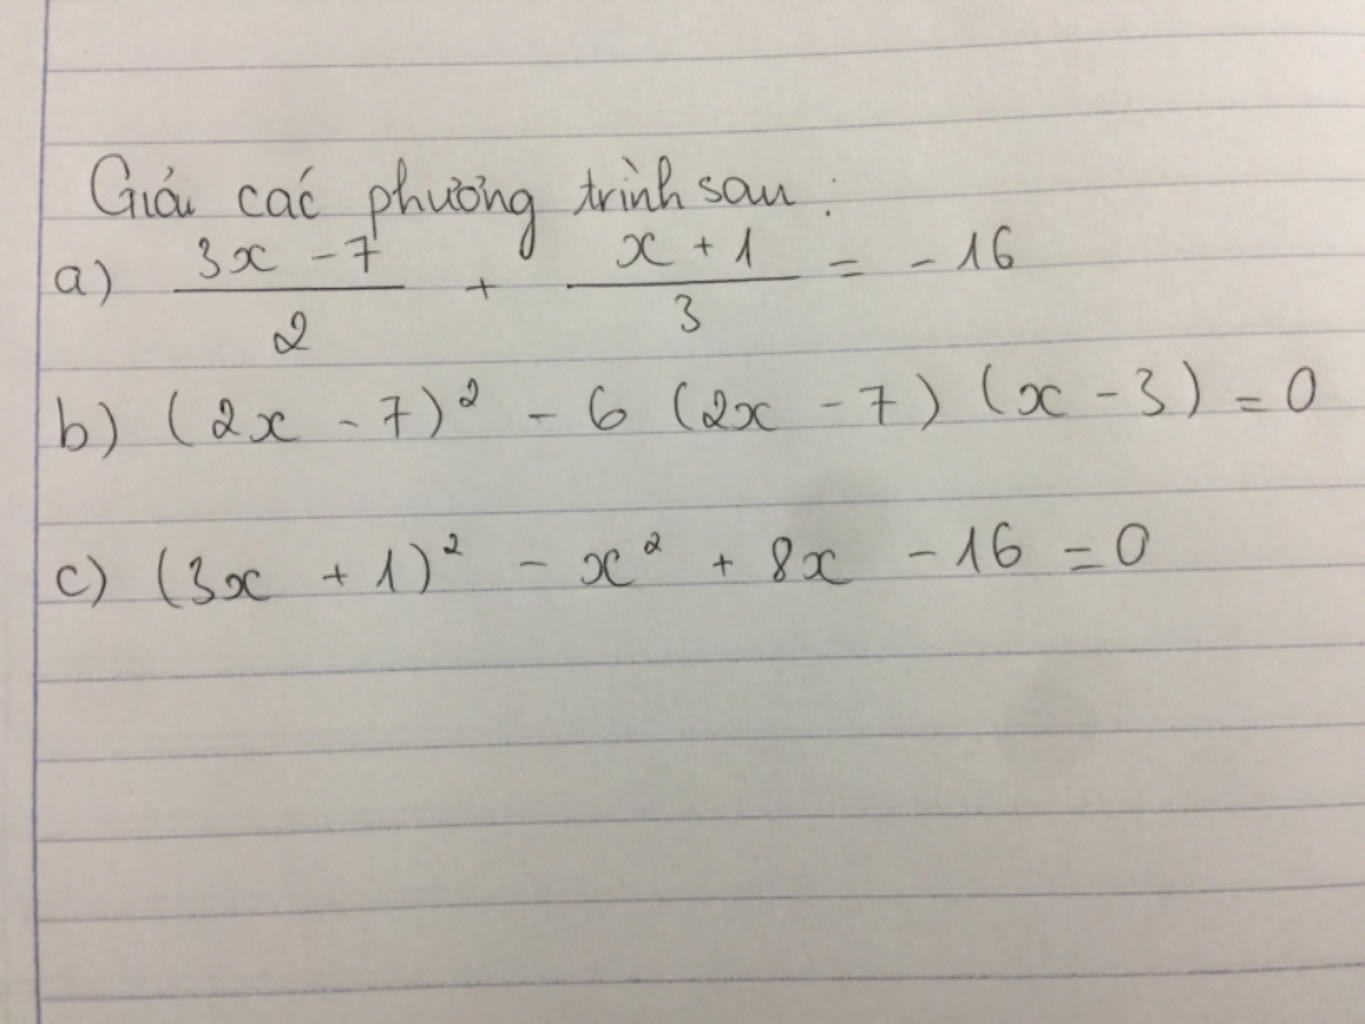 Giải các phương trình sau :
a) (3x - 7)/2 + (x + 1)/3 = -16
b) (2x - 7)² - 6 (2x - 7) (x - 3) = 0
c) (3x + 1)² - x² + 8x - 16 = 0